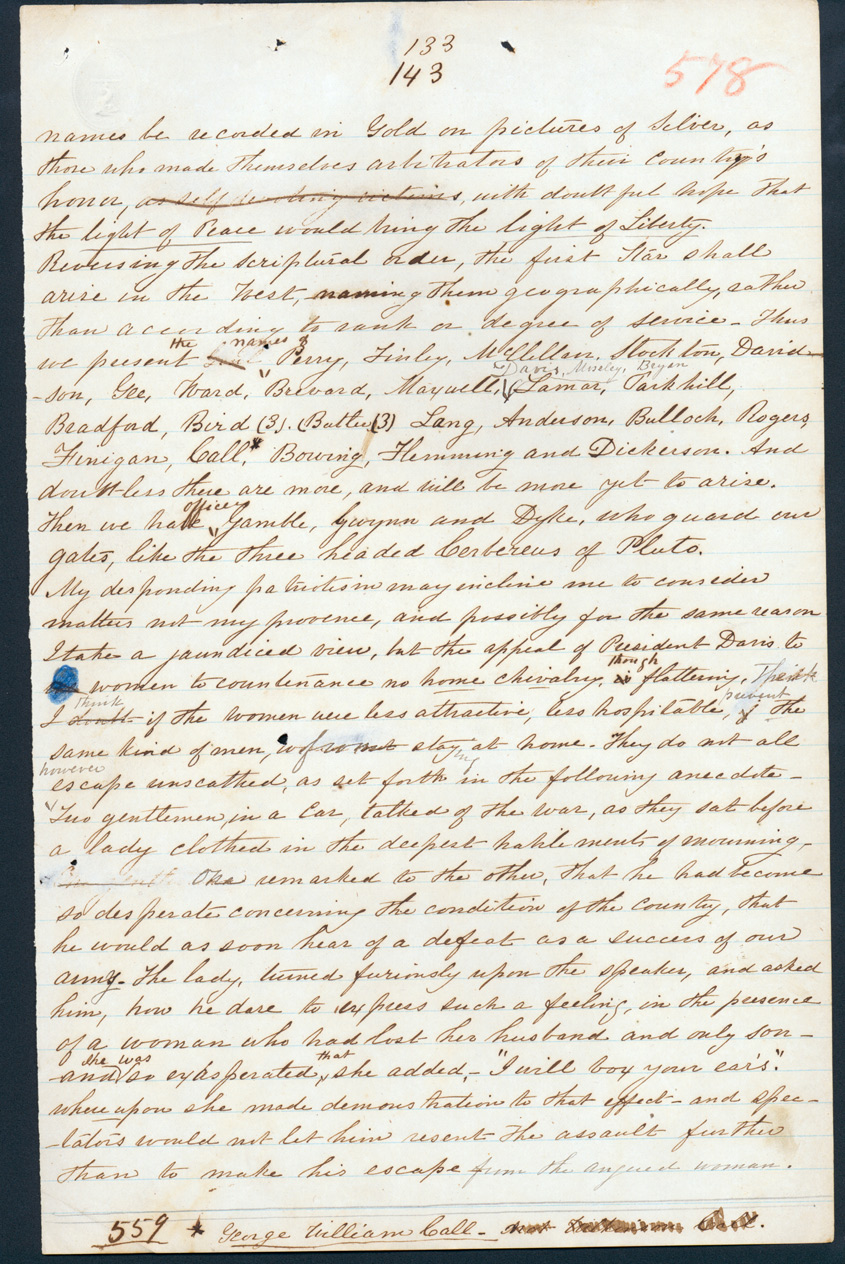 133
143
578
names be recorded in Gold on pictures of Silver, as
those who made themselves arbitrators of their country's
honor, as self victims, with doubtful hope that
the light of Peace would bring the light of Liberty.
Reversing the scriptural order, the first Star shall
arise in the West, naming them geographically, rather
than according to rank or degree of service - Thus
the names of
we present Perry, Finley, McClellan, Stockton, David-
Davis, Moseley, Bryan
-son, Gee, Ward, Brevard, Maxwell, Lamar, Parkhill,
Bradford, Bird (3). (Butler (3) Lang, Anderson, Bulloch, Rogers
Finigan, Call,* Bowing, Hemming and Dickerson. And
doubtless there are more, and will be more yet to arise.
officer
Then we have Gamble, Gwynn and Dyke, who guard our
gates, like the three headed Cerbereus of Pluto.
My desponding patriotism may incline me to consider
matters not my provence, and possibly for the same reason
I take a jaundiced view, but the appeal of President Davis to
though
women to countenance no home chivalry, is flattering, I think
think prevent
I doubt if the women were less attractive, less hospitable, if the
same kind of men, staying at home - They do not all
however
escape unscathed, as set forth in the following anecdote -
"Two gentlemen, in a Car, talked of the war, as they sat before
a lady clothed in the deepest habilements of mourning -
One remarked to the other, that he had become
so desperate concerning the condition of the country, that
he would as soon hear of a defeat as a success of our
army - The lady, turned furiously upon the speaker, and asked
him, how he dare to express such a feeling, in the presence
of a woman who had lost her husband and only son -
she was that
-and so exasperated, she added, - "I will box your ears".
whereupon she made demonstration to that effect - and spec-
-lators would not let him resent the assault further
than to make his escape from the angered woman.
559 * George William Call -